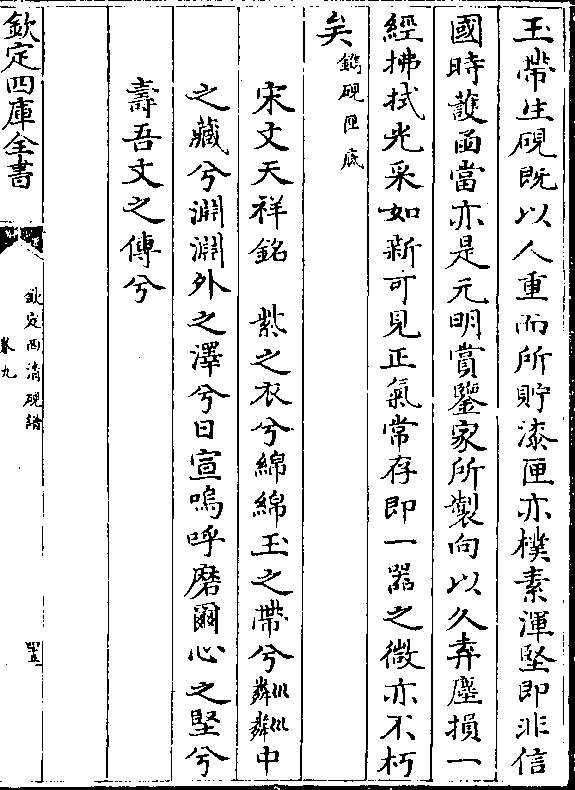 玉帶生硯既以人重而所貯漆匣亦樸素渾堅即非信
國時護函當亦是元明賞鑒家所製向以久弆塵損一
經拂拭光采如新可見正氣常存即一器之微亦不朽
矣 鐫硯匣底
宋文天祥銘 紫之衣兮綿綿玉之帶兮粼粼中
之藏兮淵淵外之澤兮日宣嗚呼磨爾心之堅兮
壽吾文之傳兮
欽定四庫全書
欽定西清硯譜
卷九